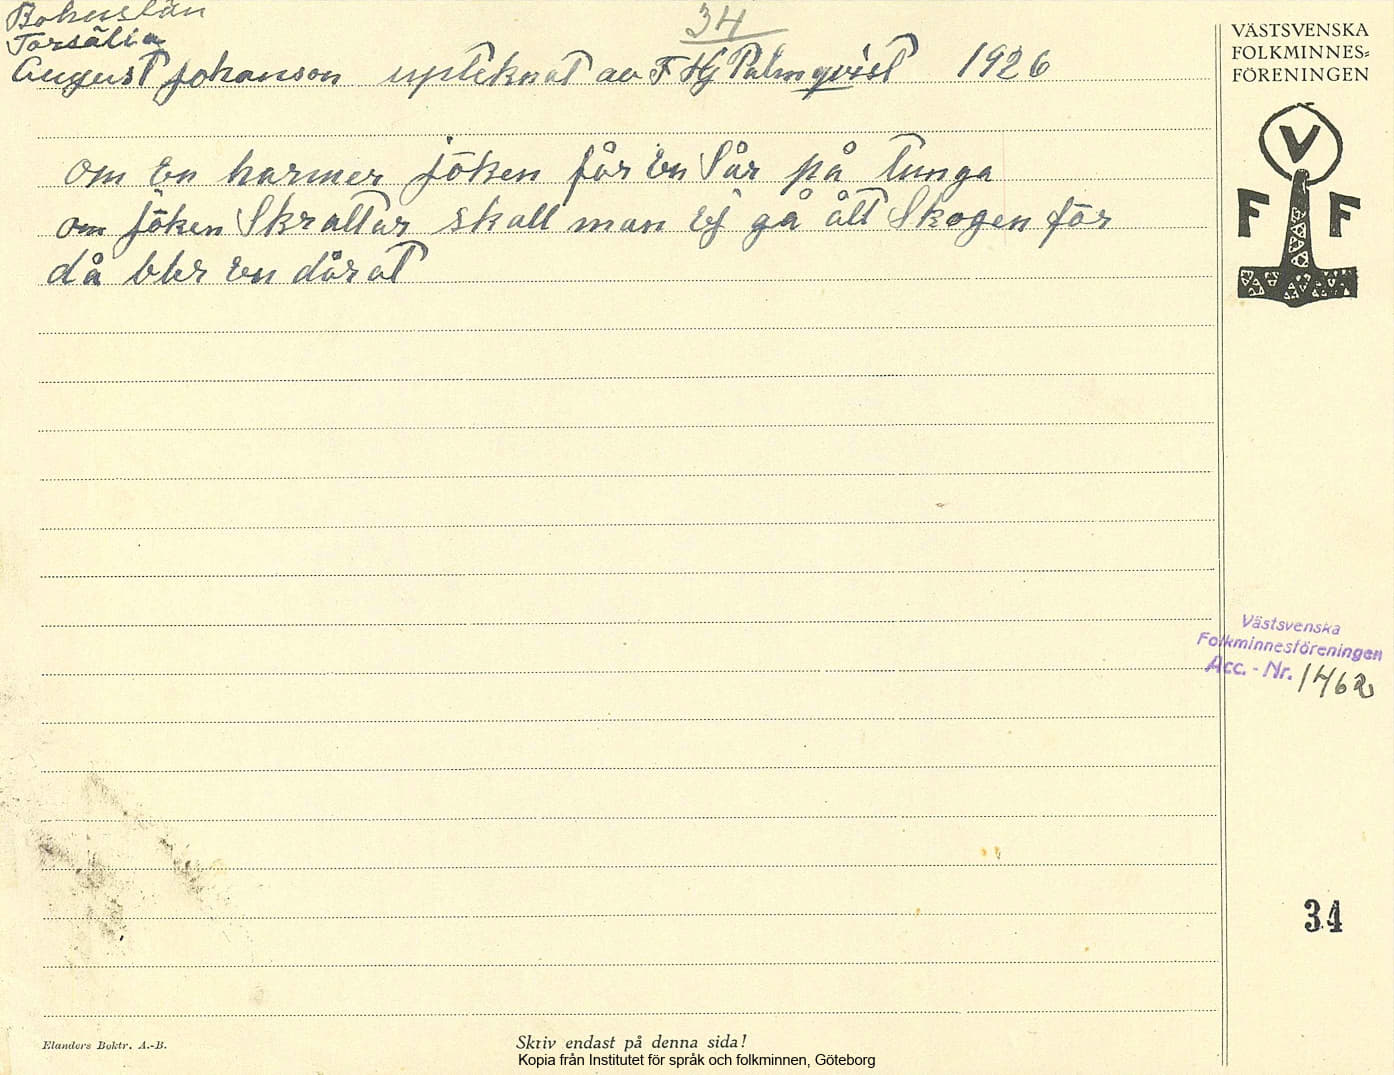 Bohuslän
34
Torsälia
August Johanson upteknat av F Hj Palmqvist 1926
om en harmer jöken får en Sår på tunga
om jöken Skrattar skall man Ej gå ått Skogen för
då blir en dårat
VÄSTSVENSKA
FOLKMINNES=
FÖRENINGEN
V
F F
Västsvenska
Folkminnesföreningen
Acc. - Nr. 1462
34
Elanders Boktr. A.-B.
Skriv endast på denna sida!
Kopia från Institutet för språk och folkminnen, Göteborg